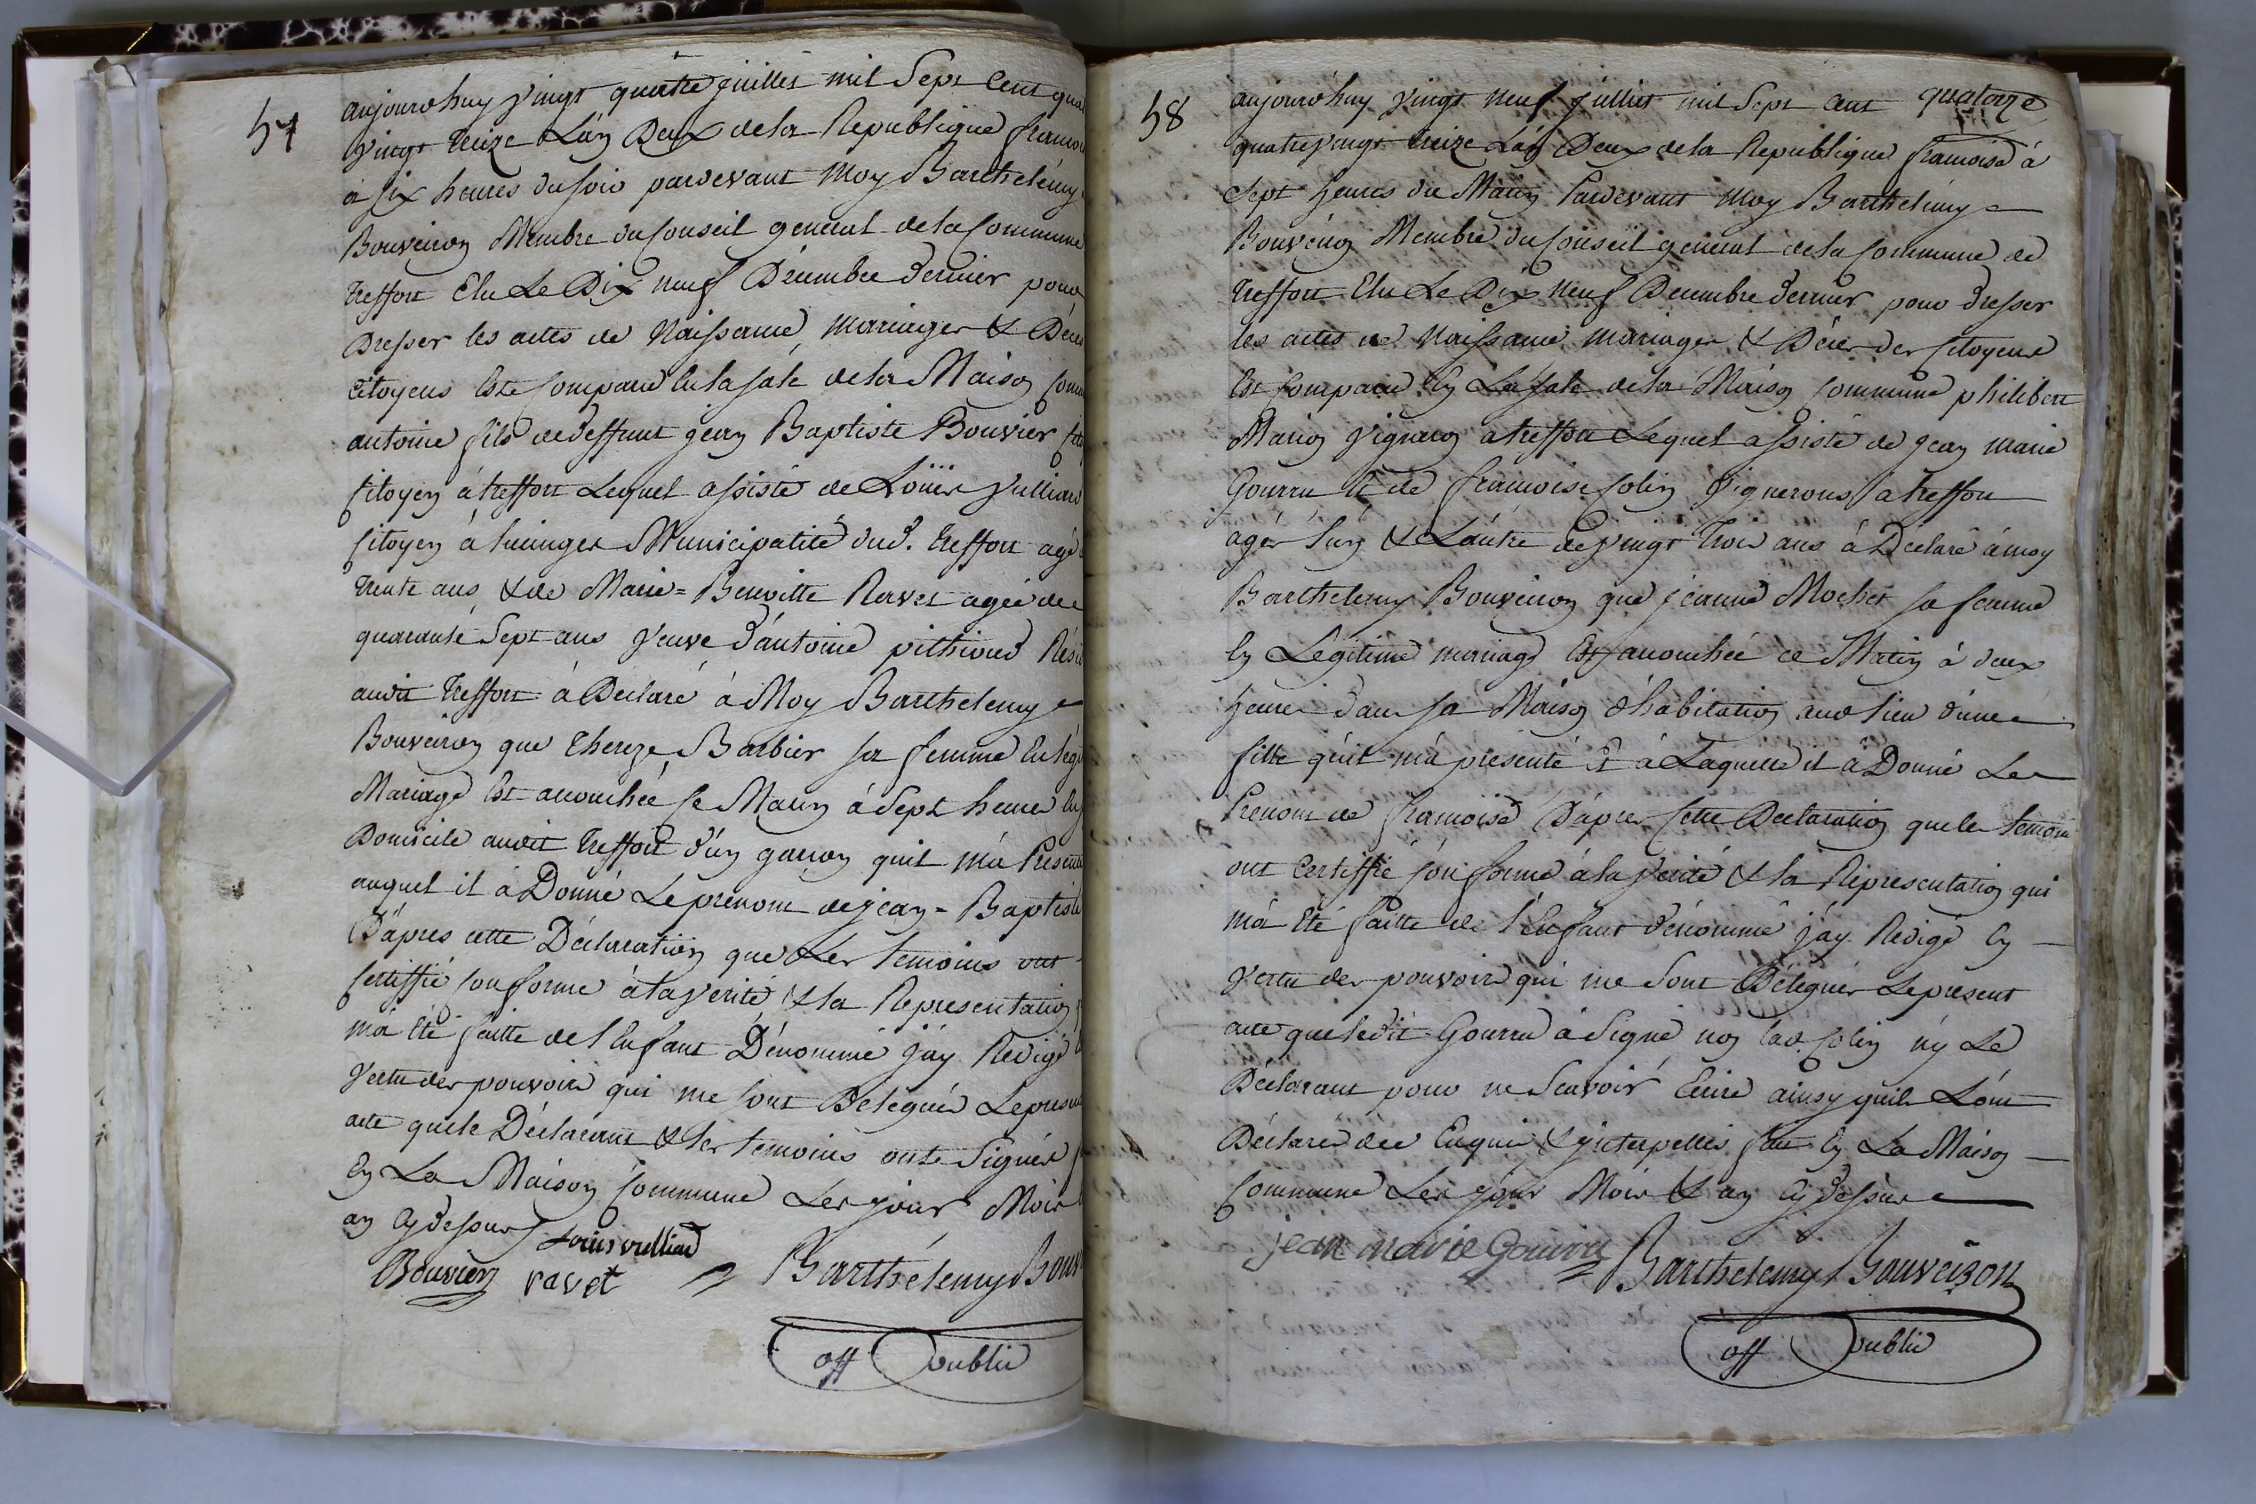 57
aujourdhuy vingt quatre juillet mil Sept Cent qua
vingt treize L'an Deux de la Republique francoi
à six heures du soir pardevant Moy Barthelémy
Bouveiron Membre du Conseil general de la Commune
treffort Elu Le Dix neuf Décembre dernier pour
Dresser les actes de Naissance, mariages & Décès
Citoyens Est Comparu En la sale de la Maison Comm
antoine fils de deffunt jean Baptiste Bouvier
Citoyen à treffort Lequel assisté de Loüis Vulliard
Citoyen à Municipalité dud. treffort agé
trente ans, & de Marie = Benoitte Ravet agée de
quarante Sept ans Veuve d'antoine pithioud Rési
audit treffort à Déclaré à Moy Barthelemy
Bouveiron que thereze Barbier sa femme En leg
Mariage Est accouchée ce Matin à Sept heures En
Domicile audit treffort d'un garcon quil m'a Présenté
auquel il à Donné Le prenom de jean = Baptiste
D'apres cette Déclaration que Les temoins ont
Certiffié Conforme à la verité, & la Representation
m'a Eté faitte de l'Enfant Dénommé j'ay Redigé
Vertu des pouvoirs qui me sont Delegués Le present
acte que le Déclarant & les temoins ont Signés
En La Maison Commune Les jour Mois
an Cy dessus
Louis vulliard
Bouvier ravet Barthélemy Bouv
off public
58
quatorze
aujourdhuy vingt neuf juillet mil Sept Cent
quatrevingt treize L'an Deux de la Republique francoise à
Sept heures du Matin Pardevant Moy Barthelémy
Bouveiron Membre du Conseil general de la Commune de
treffort Elu Le Dix Neuf Decembre dernier pour dresser
les actes de Naissance mariages & Décès des Citoyens
Est Comparu En La sale de la Maison Commune philibert
Marion Vigneron a treffort Lequel assisté de jean marie
Gourru Et de francoise Colin Vignerons a treffort
agés l'un & L'autre de vingt trois ans à Déclaré à moy
Barthelemy Bouveiron que jeanne Mochet sa femme
En Legitime mariage Est accouchée ce Matin à deux
heures dans sa Maison d'habitation aud. lieu d'une
fille qu'il m'a présenté Et à Laquelle il à Donné Le
Prenom de francoise D'apres Cette Declaration que les temoins
ont Certiffié Conforme à la verité & la Representation qui
m'a Eté faitte de l'Enfant dénommé j'ay Redigé En
Vertu des pouvoirs qui me Sont Délegués Le present
acte que ledit Gourru à Signé non lad. Colin n'y Le
Déclarant pour ne Scavoir Ecrire ainsy quils L'ont
Déclaré de ce Enquis & interpellés fait En La Maison
Commune Les jour Mois & an Cy dessus
jean marie Gourru Barthelemy Bouveiron
off public